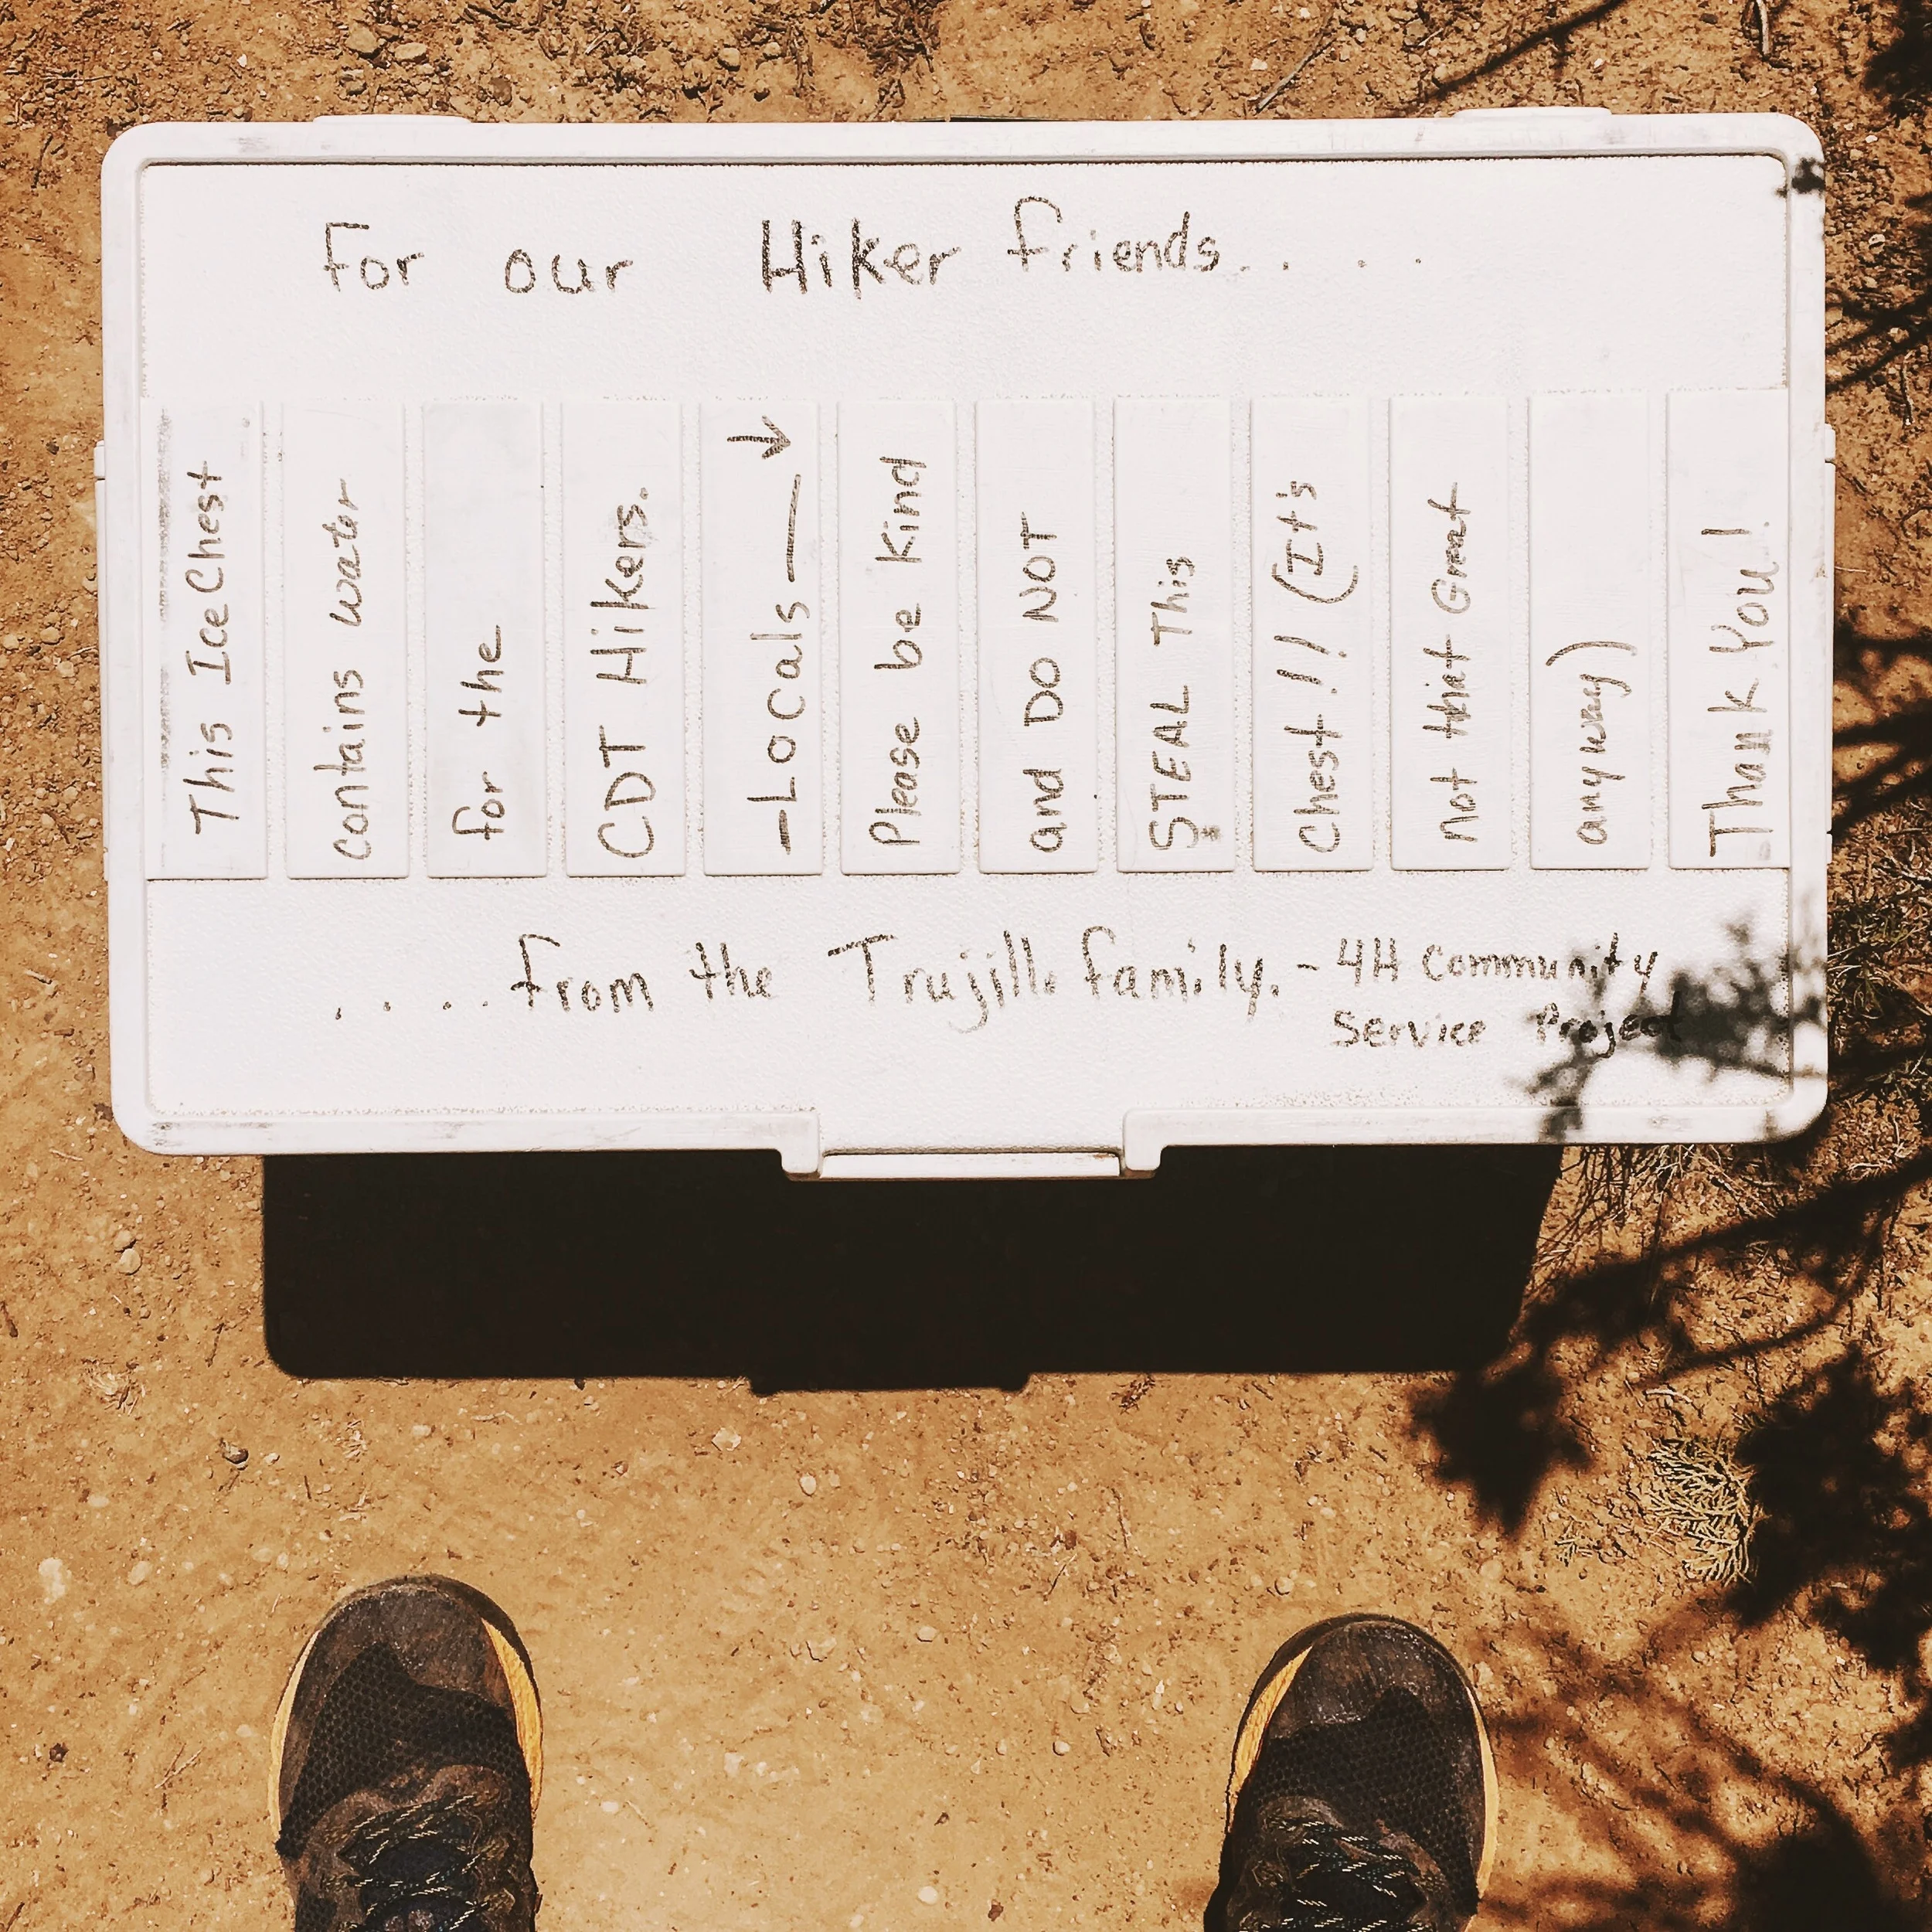 For our Hiker friends.. . . .
This Ice Chest
contains water
for the
CDT Hikers.
—Locals—→
Please be Kind
and DO NOT
STEAL This
Chest!! (It's
not that Great
anyway)
Thank You!
. . . . . from the Trujillo family. - 4H Community
Service Project